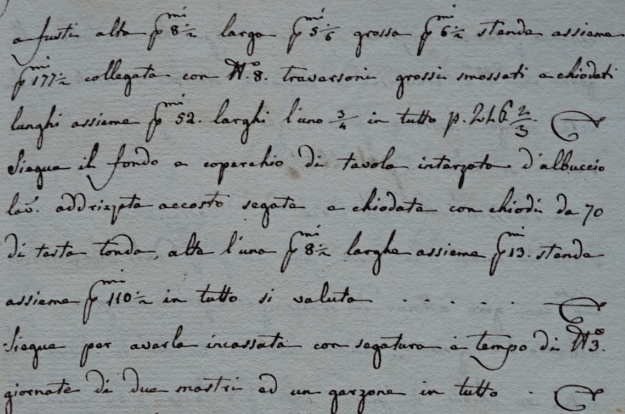 a fusti alta p.mi 8½ larga p.mi 5⅙ grossa p.mi 6½ stende assieme
p.mi 177½ collegata con N.o 8. traversoni grossi smossati e chiodati
lunghi assieme p.mi 52. larghi l'uno ¾ in tutto p. 246 ⅔
Siegue il fondo a coperchio di tavola intarzata d'albuccio
lav. addrizzata accosto segata e chiodata con chiodi da 70
di tasta tonda, alta l'una p.mi 8½ larghe assieme p.mi 13. stende
assieme p.mi 110½ in tutto si valuta . . . . . .
Siegue per averla incassata con segatura e tempo di N.o 3.
giornate di due mastri ed un garzone in tutto .